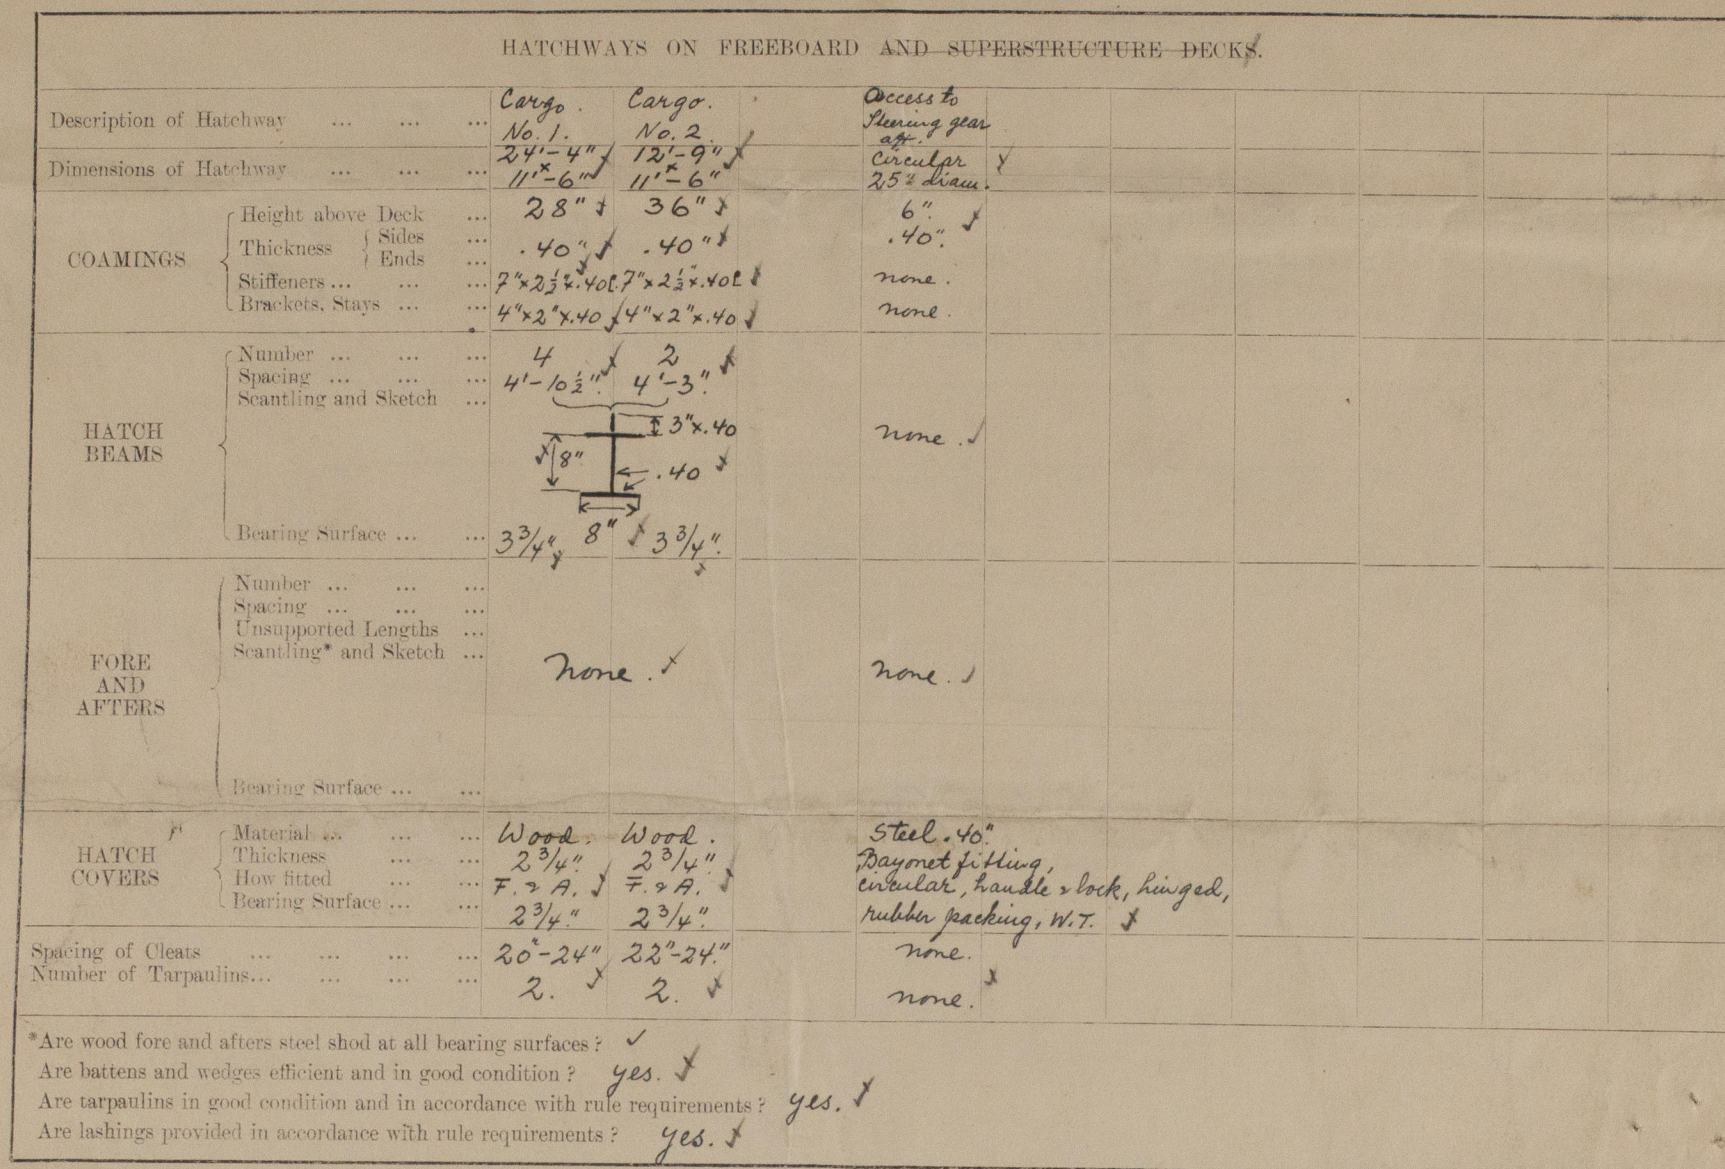 HATCHWAYS ON FREEBOARD AND SUPERSTRUCTURE DECKS.
Description of Hatchway ... ... ... Cargo. No. 1. Cargo. No. 2. Access to Steering gear aft.
Dimensions of Hatchway ... ... ... 24'-4" x 11'-6" 12'-9" x 11'-6" Circular 25" diam.
COAMINGS
Height above Deck ... 28" 36" 6".
Thickness { Sides ... .40" .40" .40".
Ends ...
Stiffeners ... ... ... 7"x2½"x.40[. 7"x2½"x.40[ none.
Brackets, Stays ... ... 4"x2"x.40 4"x2"x.40 none.
HATCH BEAMS
Number ... ... ... 4 2
Spacing ... ... ... 4'-10½". 4'-3".
Scantling and Sketch ...
3"x.40
none.
8"
.40
8"
Bearing Surface ... ... 3¾" 3¾".
FORE AND AFTERS
Number ... ... ...
Spacing ... ... ...
Unsupported Lengths ...
Scantling* and Sketch ...
None. none.
Bearing Surface ... ...
HATCH COVERS
Material ... ... ... Wood. Wood. Steel .40".
Thickness ... ... 2¾". 2¾". Bayonet fitting,
How fitted ... ... F. & A. F. & A. circular, handle & lock, hinged,
Bearing Surface ... ... 2¾". 2¾". rubber packing, W.T.
Spacing of Cleats ... ... ... ... 20"-24" 22"-24". none.
Number of Tarpaulins... ... ... ... 2. 2. none.
*Are wood fore and afters steel shod at all bearing surfaces? ✓
Are battens and wedges efficient and in good condition? yes.
Are tarpaulins in good condition and in accordance with rule requirements? yes.
Are lashings provided in accordance with rule requirements? yes.